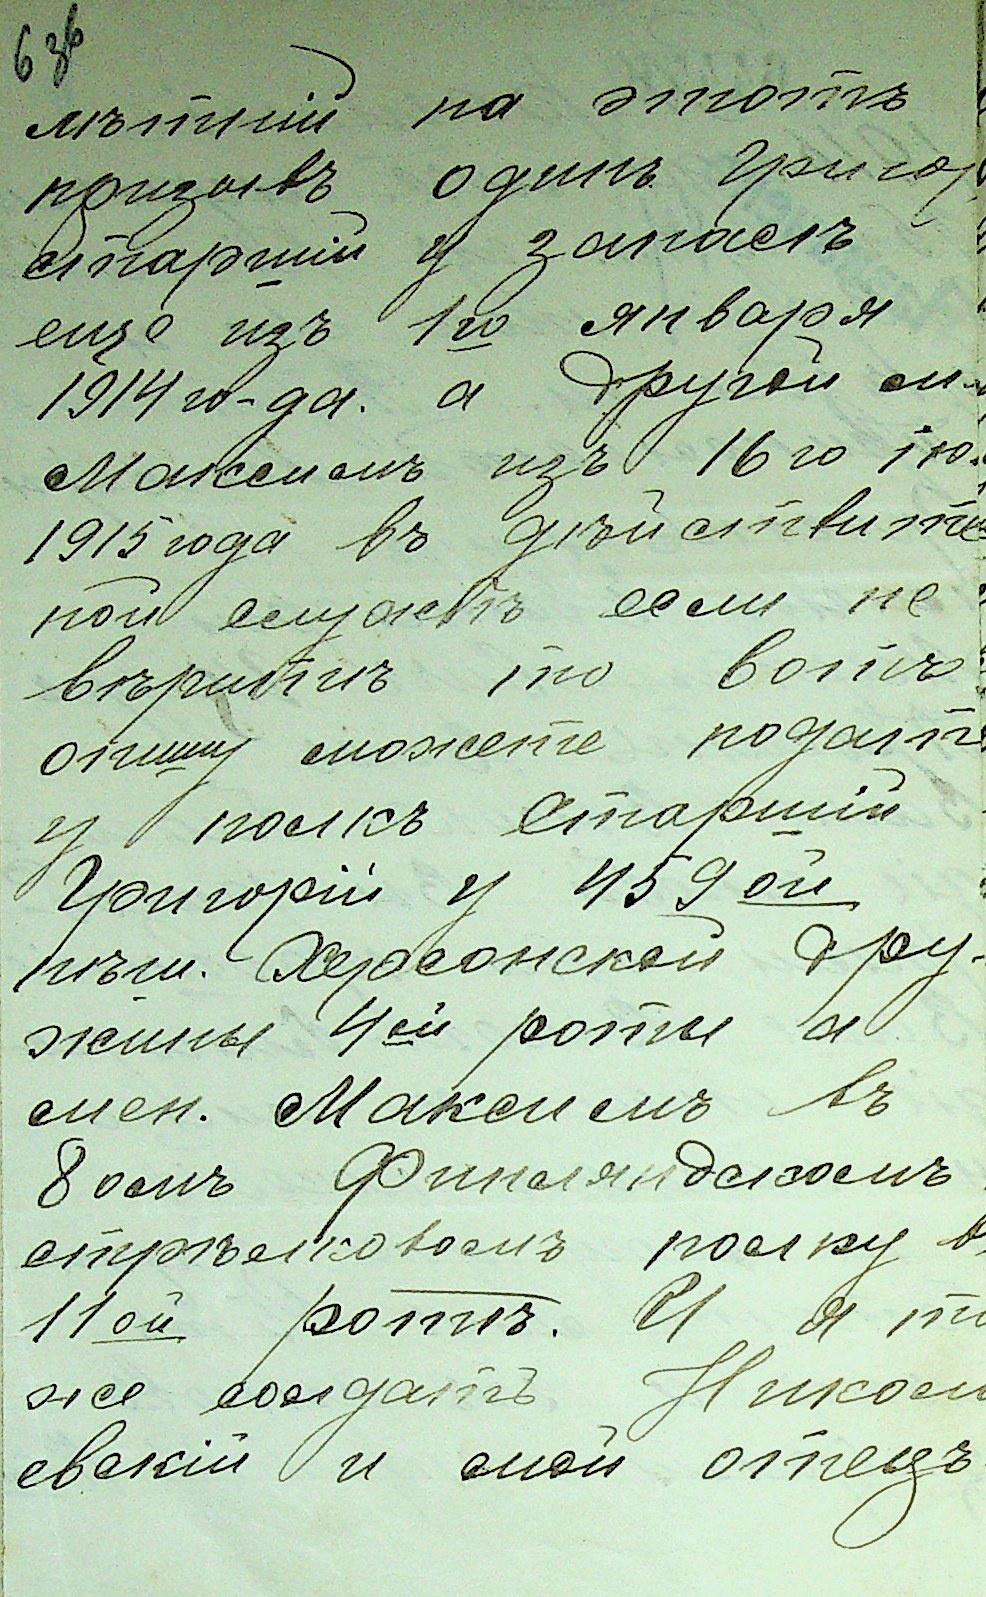 63б
лѣтній на этотъ
призывъ одинъ Григор
старшій у запасъ
еще изъ 1го января
1914 го-да. а другой
Максимъ изъ 16го ію
1915 года въ дѣйствите
ной службѣ если не
вѣритѣ то вотъ
опишу можете подате
у полкъ старшій
Григорій у 459ой
пѣш. Херсонской дру-
жины 4ей роты а
мен. Максимъ въ
8омъ Финляндскомъ
стрѣлковомъ полку в
11ой ротѣ. И я то
же солдатъ Никола
евскій и мой отецъ